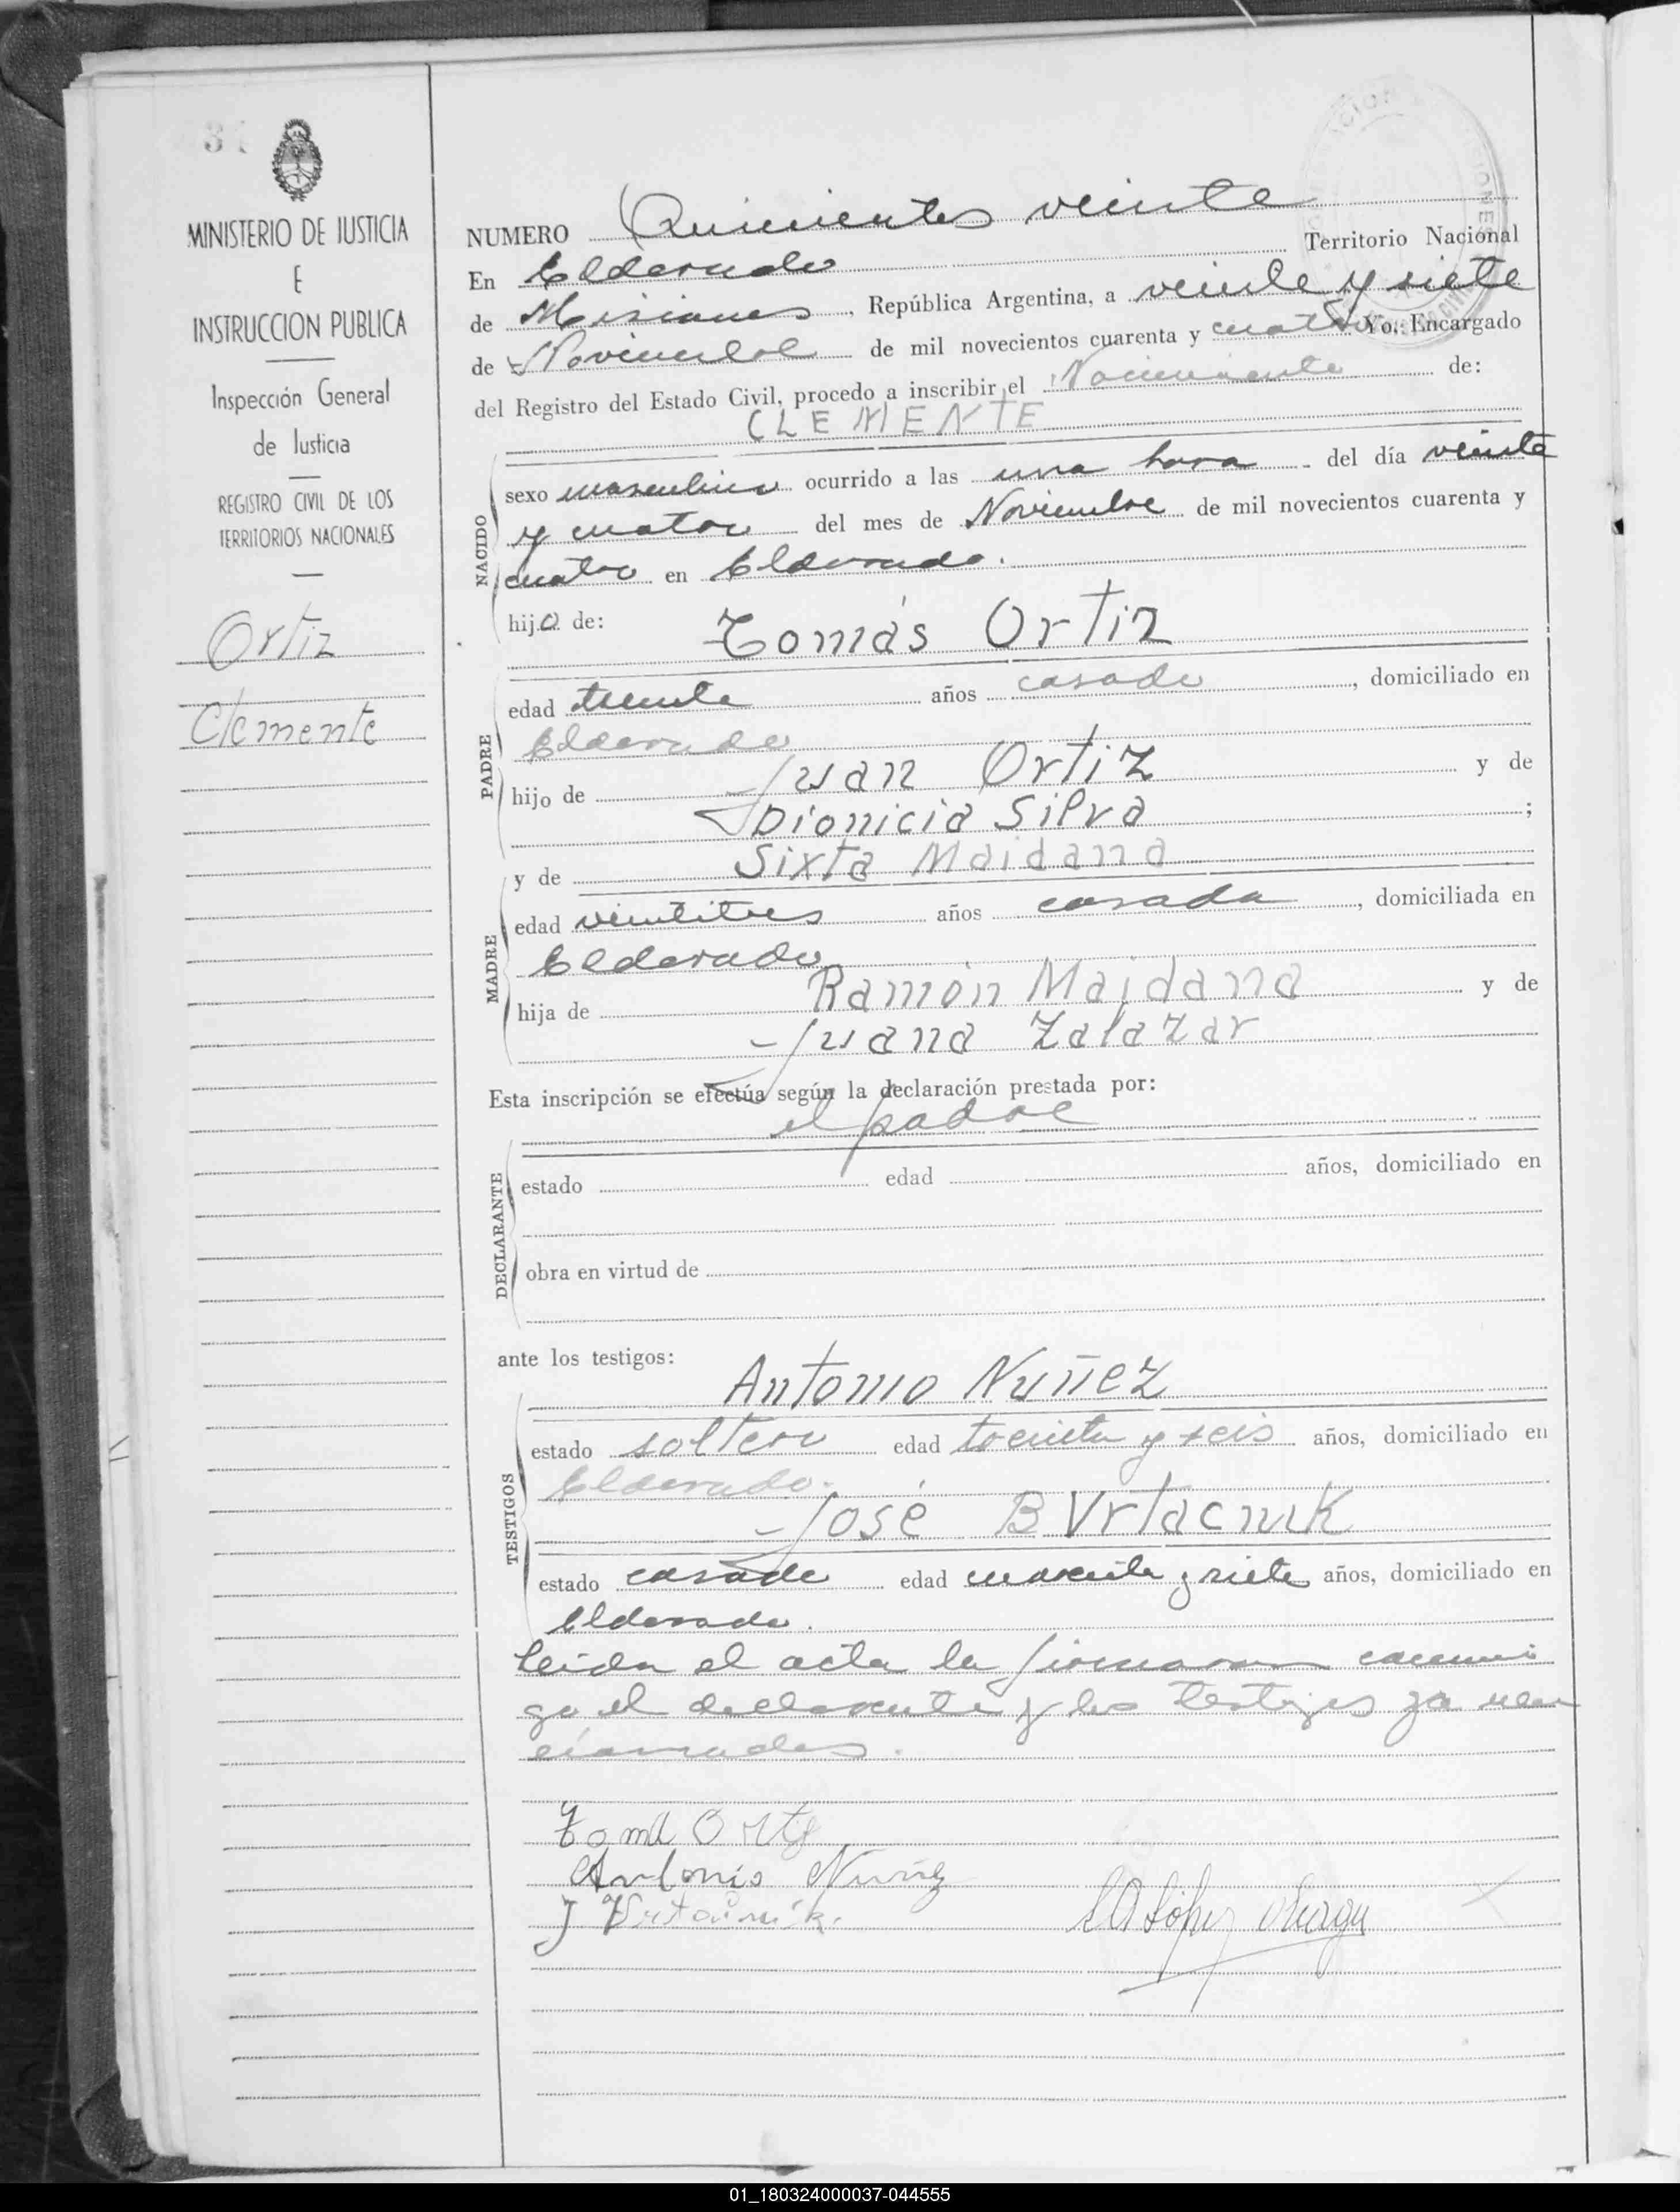 MINISTERIO DE JUSTICIA
E
INSTRUCCION PUBLICA
Inspección General
de Justicia
REGISTRO CIVIL DE LOS
TERRITORIOS NACIONALES
Ortiz
Clemente
NUMERO Quinientos veinte
En Eldorado Territorio Nacional
de Misiones, República Argentina, a veinte y siete
de Noviembre de mil novecientos cuarenta y cuatro Yo, Encargado
del Registro del Estado Civil, procedo a inscribir el Nacimiento de:
CLEMENTE
NACIDO
sexo masculino ocurrido a las una hora del día veinte
y cuatro del mes de Noviembre de mil novecientos cuarenta y
cuatro en Eldorado.
hijo de: Tomás Ortiz
PADRE
edad treinta años casado, domiciliado en
Eldorado
hijo de Juan Ortiz y de
Dionicia Silva ;
y de Sixta Maidana
MADRE
edad veintitres años casada, domiciliada en
Eldorado
hija de Ramón Maidana y de
Juana Zalazar
Esta inscripción se efectúa según la declaración prestada por:
el padre
DECLARANTE
estado edad años, domiciliado en
obra en virtud de
ante los testigos:
Antonio Nuñez
TESTIGOS
estado soltero edad treinta y seis años, domiciliado en
Eldorado.
José B Vrtacnik
estado casado edad cuarenta y siete años, domiciliado en
Eldorado.
Leida el acta la firmaron conmi
go el declarante y los testigos ya men
cionados.
Antonio Nuñez
01_180324000037-044555